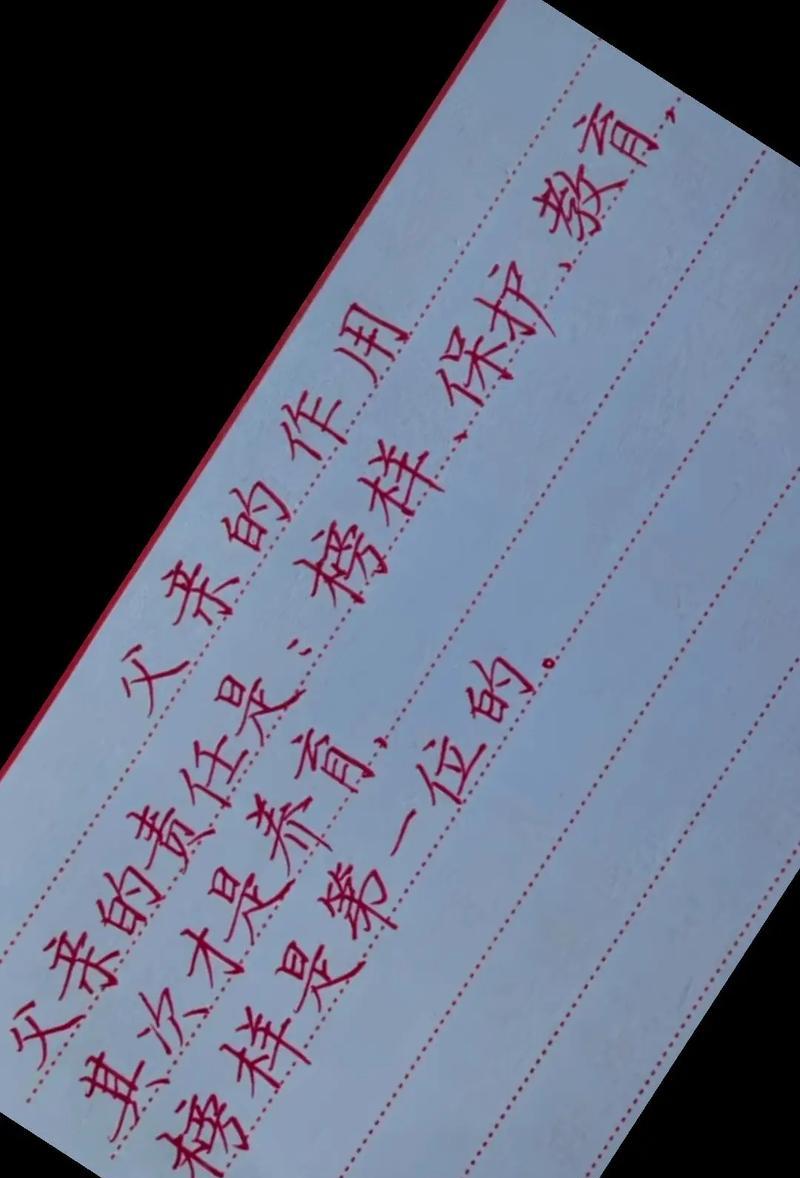 父亲的作用
父亲的责任是：榜样、保护、教育，
其次才是养育，
榜样是第一位的。